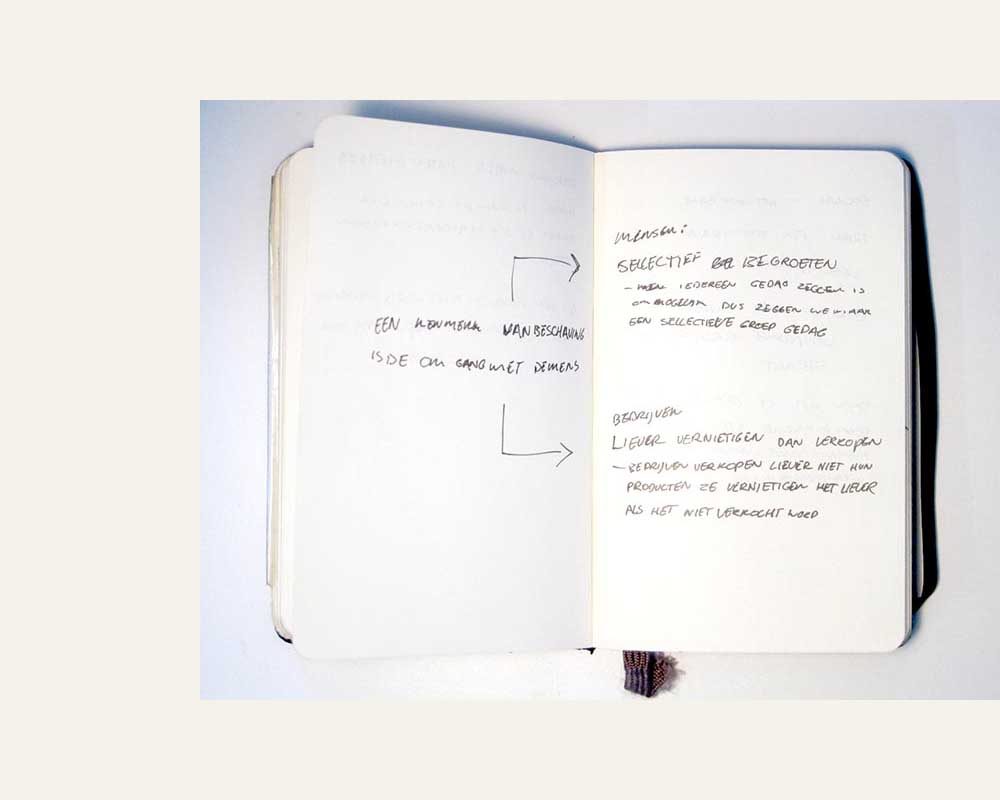 EEN KENMERK VAN BESCHAVING
IS DE OMGANG MET DE MENS
MENSEN:
SELLECTIEF BEGROETEN
- IEDEREEN GEDAG ZEGGEN IS
ONMOGELIJK DUS ZEGGEN WE MAAR
EEN SELLECTIEVE GROEP GEDAG
BEDRIJVEN
LIEVER VERNIETIGEN DAN VERKOPEN
- BEDRIJVEN VERKOPEN LIEVER NIET HUN
PRODUCTEN ZE VERNIETIGEN HET LIEVER
ALS HET NIET VERKOCHT WORD